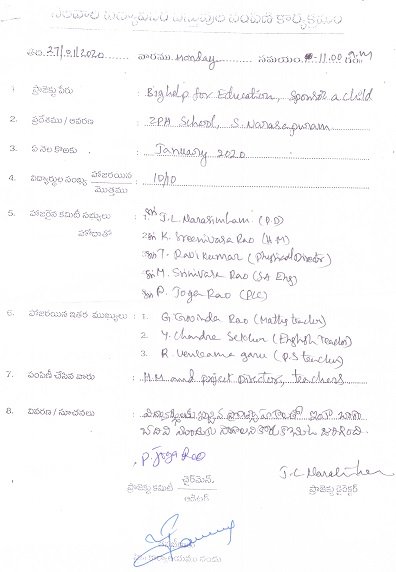 తేది. 27/01/2020 వారము Monday సమయం 11.00 గం. a.m
1 ప్రాజెక్టు పేరు : Bighelp for Education, Sponsor a child
2. ప్రదేశము / ఆవరణ : ZPH School, S. Narasapuram
3. ఏ నెల కొఱకు : January 2020
4. విద్యార్థుల సంఖ్య హాజరయిన / మొత్తము : 10/10
5. హాజరైన కమిటీ సభ్యులు : J.L Narasimham (P.D)
హోదాతో K. Sreenivasa Rao (H.M)
T. Ravi Kumar (Physical Director)
M. Srinivasa Rao (SA Eng)
P. Joga Rao (PLC)
6. హాజరయిన ఇతర ముఖ్యులు : 1. G. Govinda Rao (Maths teacher)
2. Y. Chandra Sekhar (English Teacher)
3. R. Venkanna garu (P.S teacher)
7. పంపిణీ చేసిన వారు : H.M. and project Director, teachers
8. వివరణ / సూచనలు :
P. Joga Rao
ఛైర్మెన్,
ప్రాజెక్టు కమిటీ ప్రాజెక్టు డైరెక్టర్
ఆడిటర్